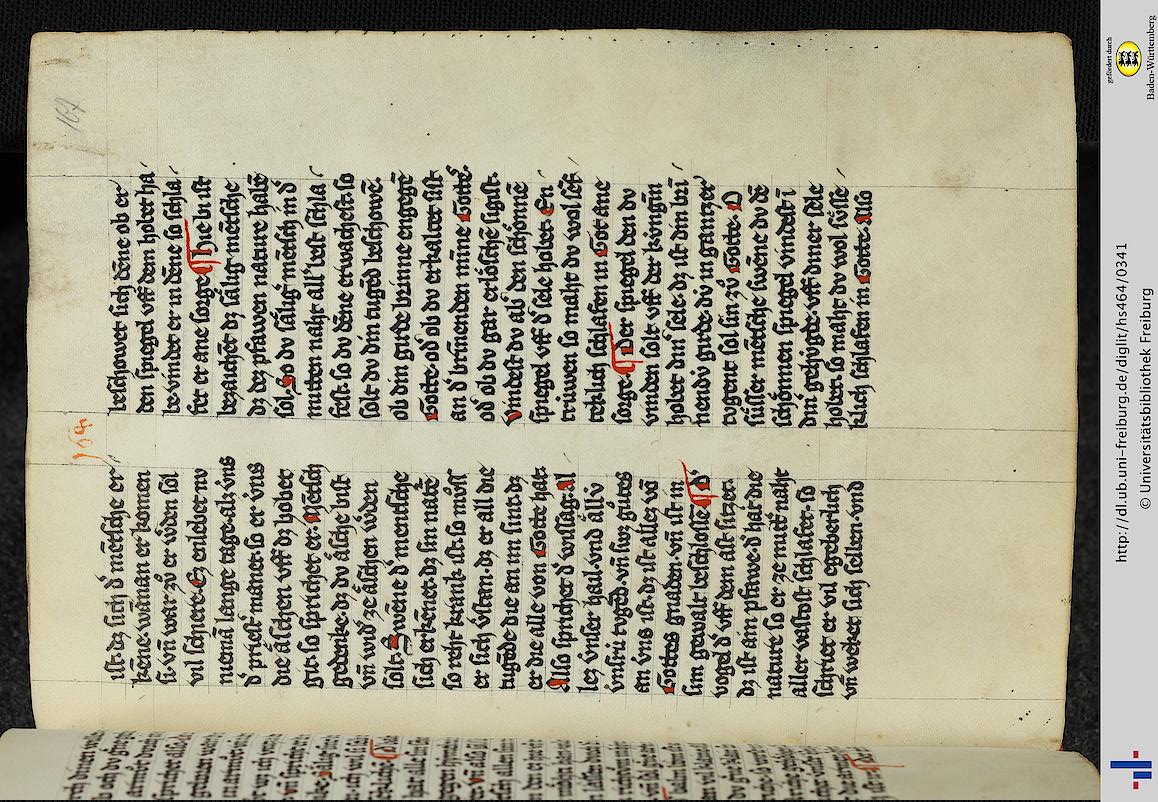 167
164
ist. dez sich d' mētsche er
kēne. wānan er komen
si. vn̄ war zů er wden sol
vil schiere. Ez enlebet nv
niemā lange tage. alz vns
d' priest' mānet. so er vns
die äschen vff dz hobet
git. so sprichet er. Mētsch
gedenke. dz dv äsche bist
vn̄ wid' ze äschen wden
solt. Swēne d' mentsche
sich erkēnet. dz sin natē
so reht krank ist. so mvͦs
er sich v'stan. dz er all die
tugēde die an im sint. dz
er die alle von Gotte hat.
Also sprichet d' wissag. al
lez vnser hail. vnd all v
vnsru tvgēd. vn̄ swz gůtes
an vns ist. dz ist allez vō
Gottes gnaden. vn̄ ist in
sim gewalt beschlossē. D'
vogel d' vff dem ast sitzet.
dz ist ain pfawe. d' hat die
nature so er ze mitt' naht
aller vastost schlafet. so
schriet er vil egeberlich
vn̄ weket sich selben. vnd
beschowet sich dēne ob er
den spiegel vff dem hobet ha
be. vindet er in dēne so schla
fet er ane sorge. Hie bi ist
bezaichet dz sälig mētsche
dz dez pfawen nature habē
sol. So dv sälig mētsch in d'
mitten naht all' best schla
fest. so dv dēne erwachest. so
solt dv din tugēd beschowē.
ob din girde brinne engegē
Gotte. od' ob dv erkaltet sist
an d' brinenden mīne Gottē.
od' ob dv gar erlöschē sigist.
vindest dv ab' den schönnē
spiegel vff d' sele hobet. En
triuwen so maht dv wol sēf
teklich schlafen in Got ane
sorge. Der spiegel den dv
vinden solt vff der kvngin
hobet din' sele. dz ist din bri
nendv girde. dv in ganzer
tvgent sol sin zů Gotte. O
süsser mētsche swēne dv dē
schönnen spiegel vindest i
din' gehvgde. vff diner sele
hobet. so maht dv wol süsse
klich schlafen in Gotte. Also
gefördert durch
Baden-Württemberg
http://dl.ub.uni-freiburg.de/diglit/hs464/0341
© Universitätsbibliothek Freiburg